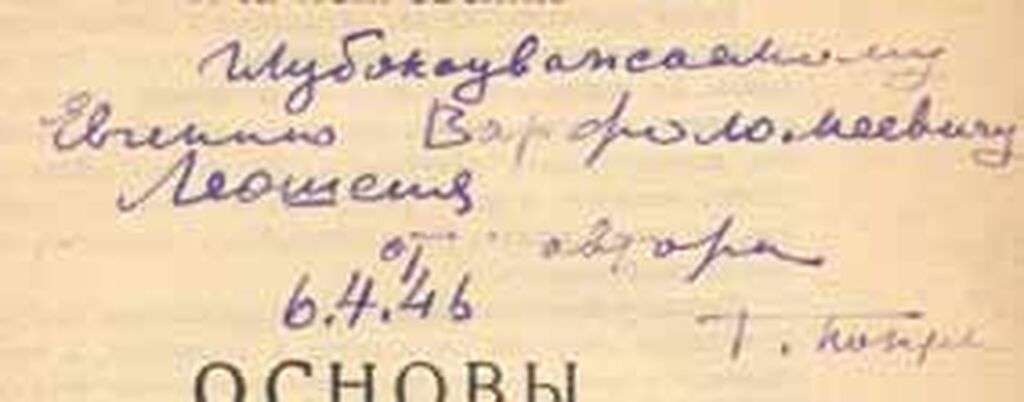 Глубокоуважаемому
Евгению Варфоломеевичу
от автора
6.4.46
Т.
ОСНОВЫ